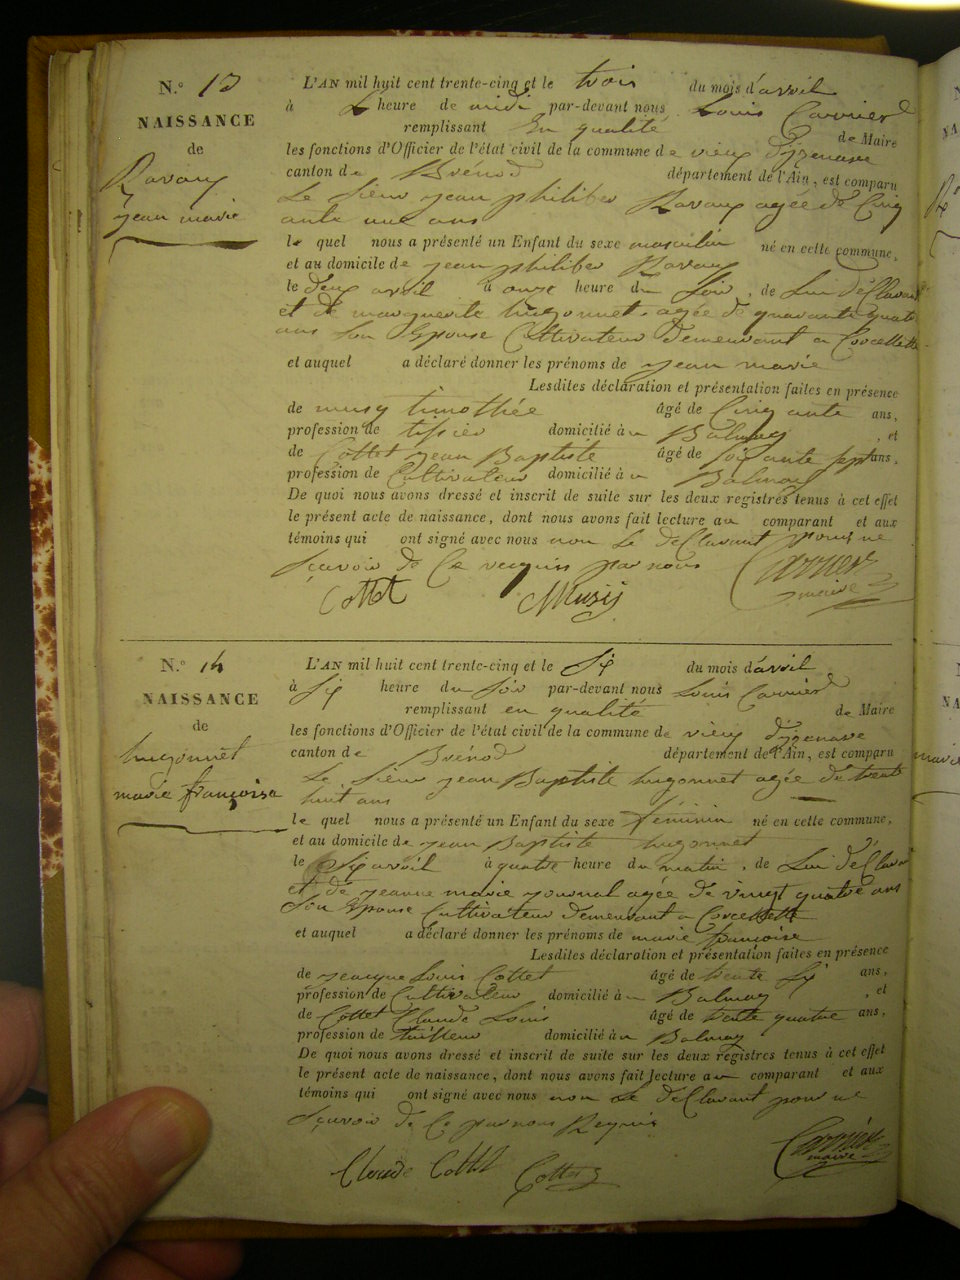 N.° 13
NAISSANCE
de
Ravaux
jean marie
L'AN mil huit cent trente-cinq et le trois du mois d'avril
à L heure de midi par-devant nous Louis Carrier
remplissant En qualité de Maire
les fonctions d'Officier de l'état civil de la commune de vieux d'izenave
canton de Brénod département de l'Ain, est comparu
Le Sieur jean philiber Ravaux agée de Cinq
ante une ans
le quel nous a présenté un Enfant du sexe masculin né en cette commune,
et au domicile de jean philiber Ravaux
le deux avril à onze heure du Soir, de Lui déClarant
et de marguerite hugonnet agée de quarante quatre
ans Son Epouse Cultivateur demeurant a Corcellette
et auquel a déclaré donner les prénoms de jean marie
Lesdites déclaration et présentation faites en présence
de musy timothée âgé de Cinq ante ans,
profession de tissier domicilié à Balmay, et
de Cottet jean Baptiste âgé de soixante sept ans,
profession de Cultivateur domicilié à Balmay
De quoi nous avons dressé et inscrit de suite sur les deux registres tenus à cet effet
le présent acte de naissance, dont nous avons fait lecture au comparant et aux
témoins qui ont signé avec nous non Le déClarant pour ne
sçavoir de Ce requis par nous Carrier
maire
Cottet Musy
N.° 14
NAISSANCE
de
hugonnet
marie françoise
L'AN mil huit cent trente-cinq et le Six du mois d'avril
à Six heure du Soir par-devant nous Louis Carrier
remplissant en qualité de Maire
les fonctions d'Officier de l'état civil de la commune de vieux d'izenave
canton de Brénod département de l'Ain, est comparu
Le Sieur jean Baptiste hugonnet agée de trente
huit ans
le quel nous a présenté un Enfant du sexe féminin né en cette commune,
et au domicile de jean Baptiste hugonnet
le Six avril à quatre heure du matin, de Lui déClarant
et de jeanne marie journal agée de vingt quatre ans
Son Epouse Cultivateur demeurant a Corcellette
et auquel a déclaré donner les prénoms de marie françoise
Lesdites déclaration et présentation faites en présence
de jeacque Louis Cottet âgé de trente Six ans,
profession de Cultivateur domicilié à Balmay, et
de Cottet Claude Louis âgé de trente quatre ans,
profession de tailleur domicilié à Balmay
De quoi nous avons dressé et inscrit de suite sur les deux registres tenus à cet effet
le présent acte de naissance, dont nous avons fait lecture au comparant et aux
témoins qui ont signé avec nous non Le déClarant pour ne
sçavoir de Ce par nous Requis
Claude Cottet Cottet Carrier
maire